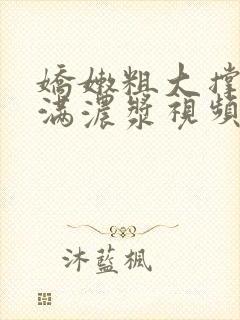 嬌嫩粗大撐
滿濃漿視頻
沐藍楓